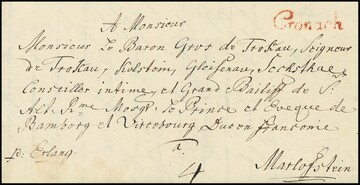 A Monsieur
Cronach
Monsieur Le Baron Gros de Trokau, Seigneur
de Trokau, Kolstein, Gleisenau,
Conseiller intime, et Grand Bailiff de S:
Alt. Rme Msgr. Le Prince et Eveque de
Bamberg et Wircebourg Duc en franconie
a
p: Erlang
4
Marlofstein